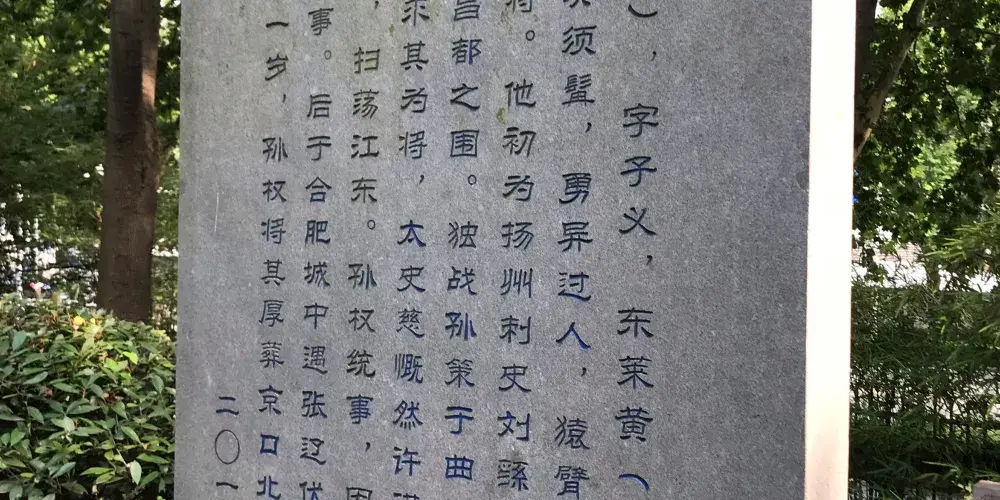 ），字子义，东莱黄（
须髯，勇异过人，猿臂
将。他初为扬州刺史刘繇
昌都之围。独战孙策于曲
求其为将，太史慈慨然许诺
，扫荡江东。孙权统事，因
事。后于合肥城中遇张辽伏
一岁，孙权将其厚葬京口北
二〇一